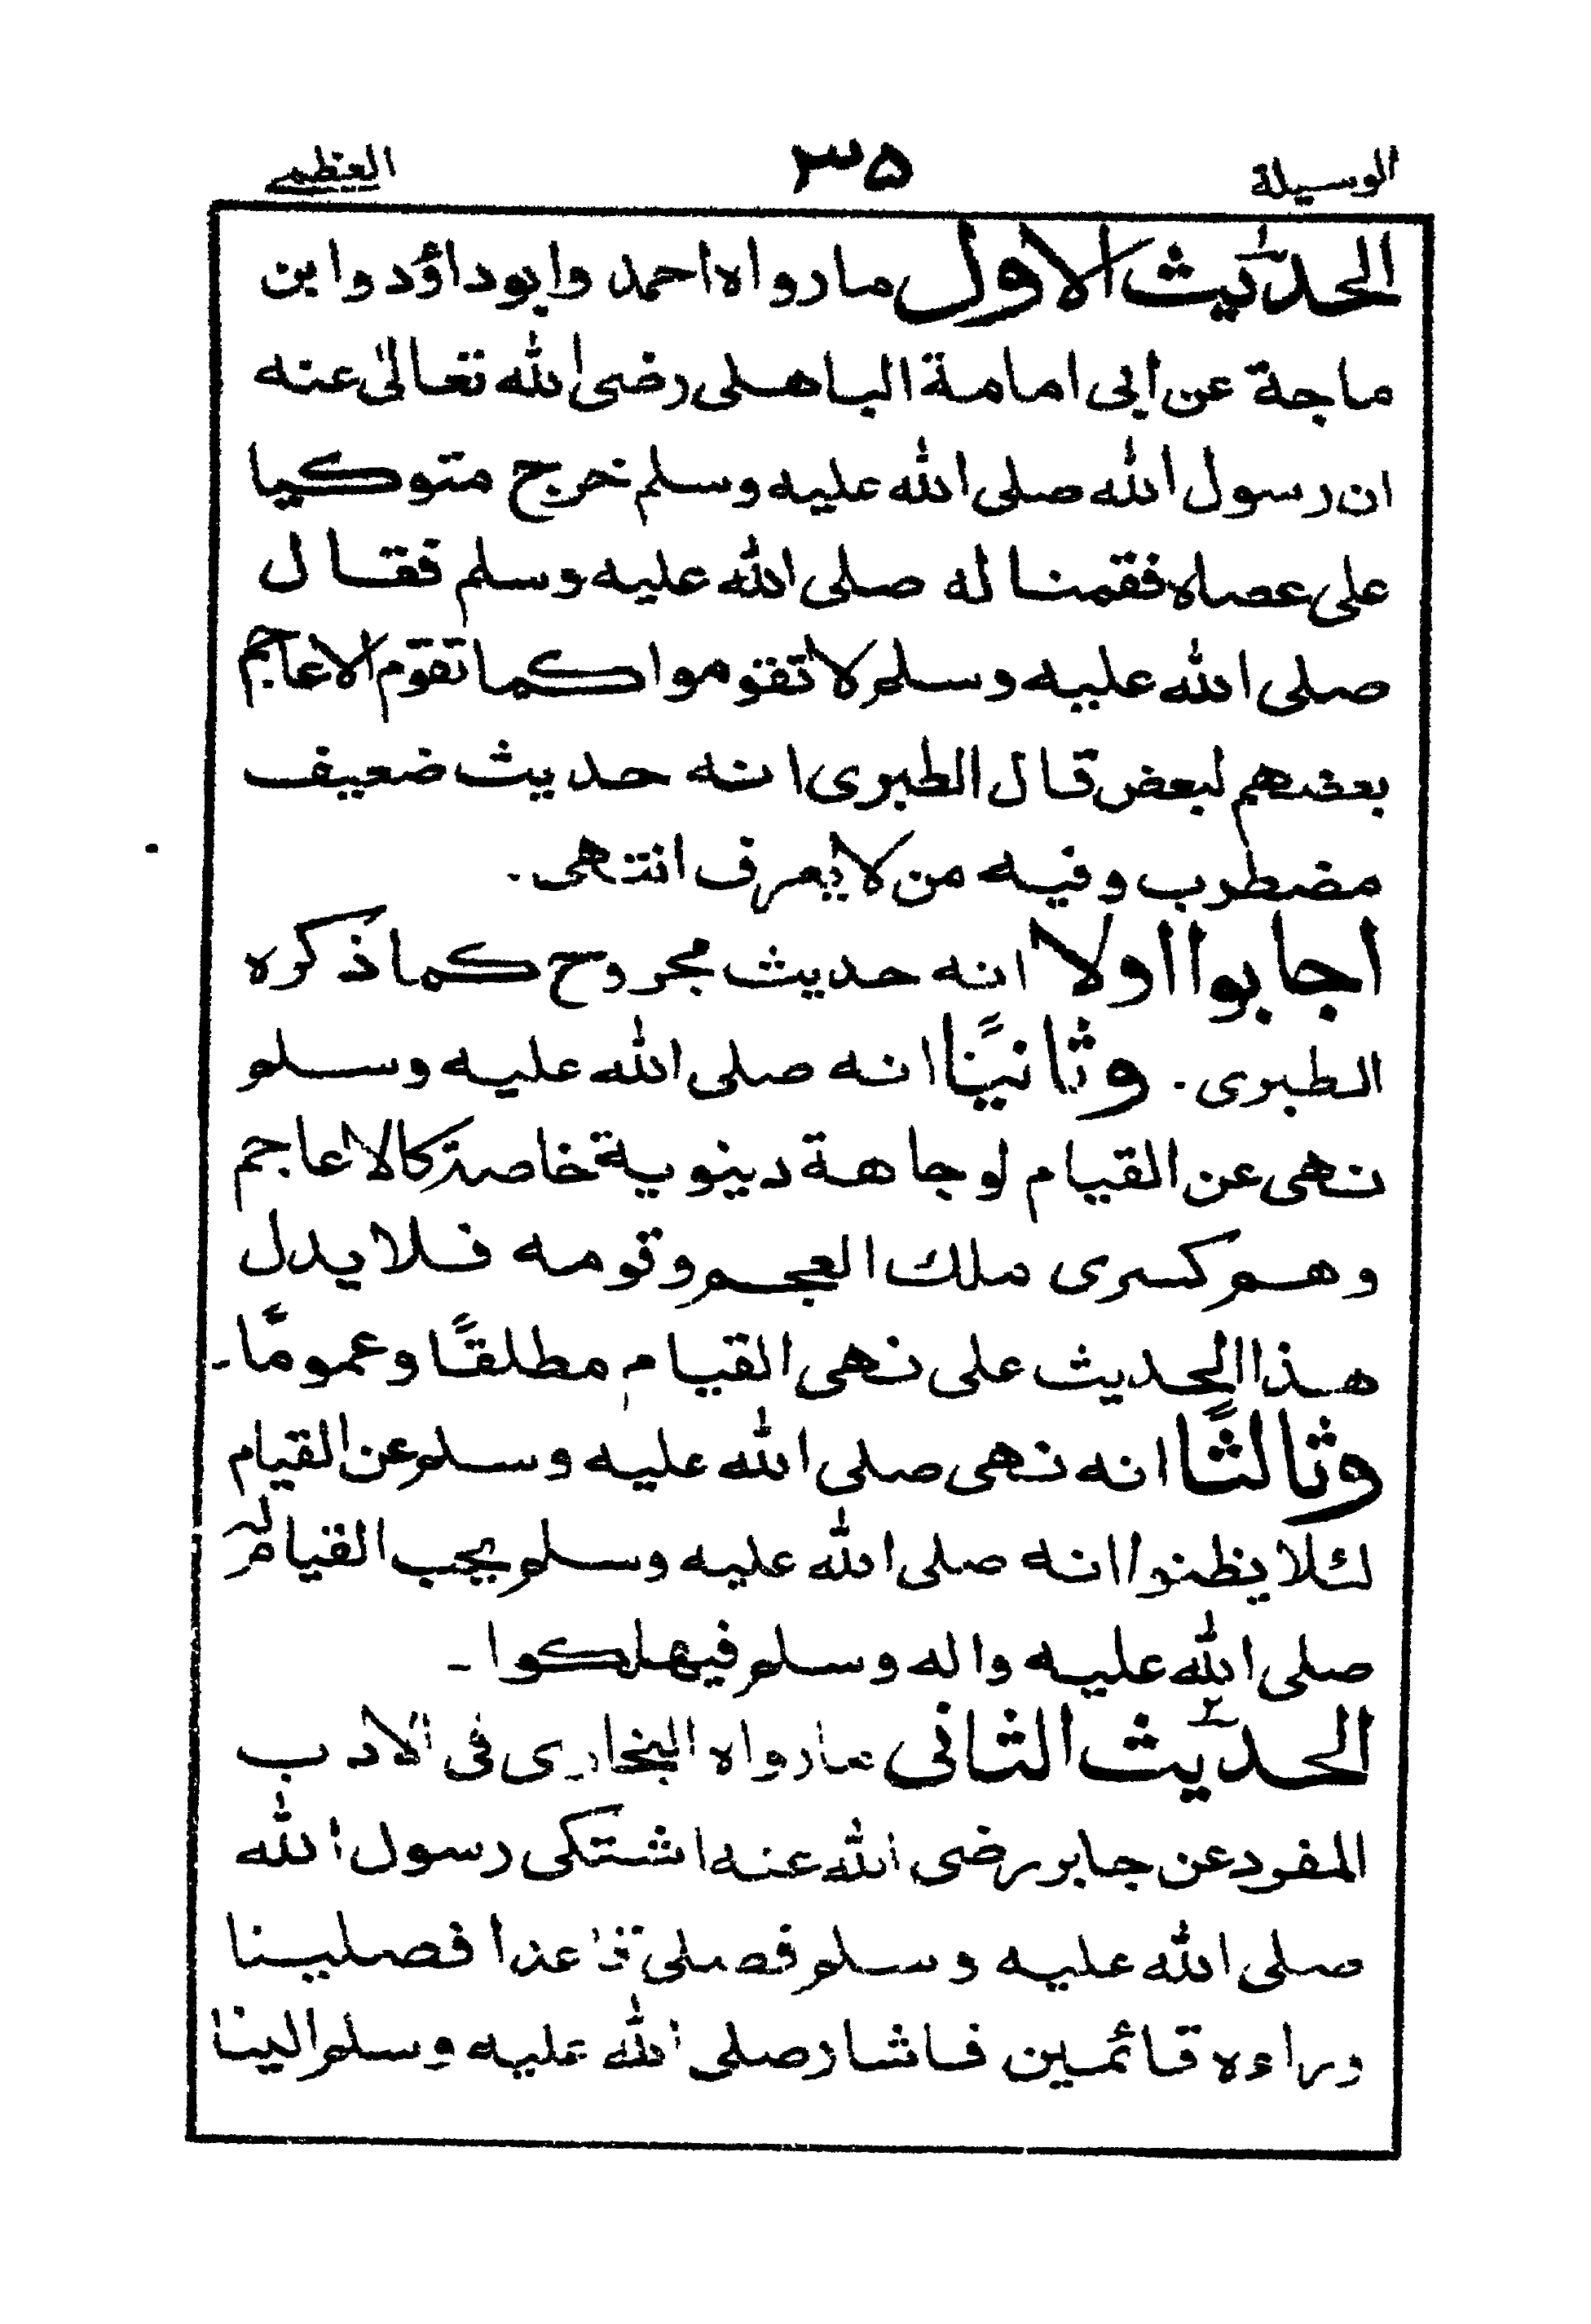 الوسيلة ٣٥ العظمى
الحديث الاول ما رواه احمد وابوداؤد وابن
ماجة عن ابى امامة الباهلى رضى الله تعالىٰ عنه
ان رسول الله صلى الله عليه وسلم خرج متوكيا
على عصاه فقمنا له صلى الله عليه وسلم فقال
صلى الله عليه وسلم لا تقوموا كما تقوم الاعاجم
بعضهم لبعض قال الطبرى انه حديث ضعيف
مضطرب وفيه من لا يعرف انتهى.
اجابوا اولا انه حديث مجروح كما ذكره
الطبرى. وثانيًا انه صلى الله عليه وسلم
نهى عن القيام لوجاهة دينوية خاصة كالاعاجم
وهم كسرى ملك العجم وقومه فلا يدل
هذا الحديث على نهى القيام مطلقًا وعمومًا۔
وثالثًا انه نهى صلى الله عليه وسلم عن القيام
لئلا يظنوا انه صلى الله عليه وسلم يجب القيام له
صلى الله عليه واله وسلم فيهلكوا۔
الحديث الثانى ما رواه البخارى فى الادب
المفرد عن جابر رضى الله عنه اشتكى رسول الله
صلى الله عليه وسلم فصلى قاعدا فصلينا
وراءه قائمين فاشار صلى الله عليه وسلم الينا